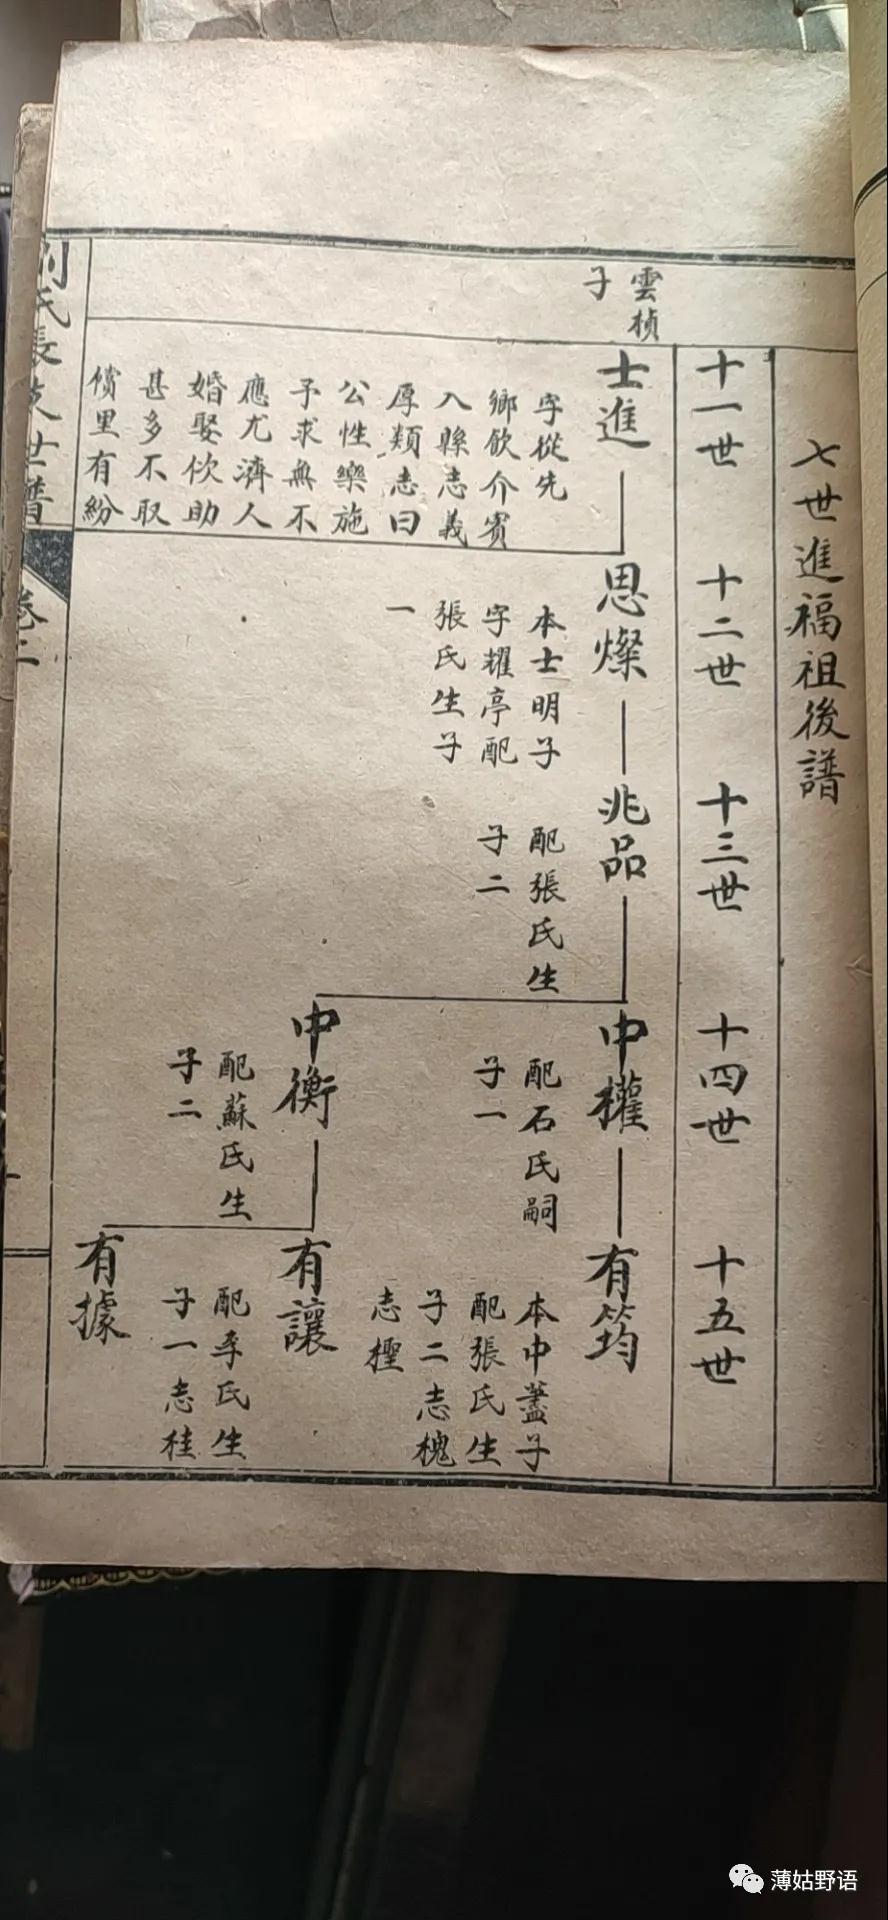 七世進福祖後譜
十一世
十二世
十三世
十四世
十五世
雲楨
子
士進
字從先
鄉飲介賓
入縣志義
厚類志曰
公性樂施
予求無不
應尤濟人
婚娶佽助
甚多不取
償里有紛
思燦
本士明子
字耀亭配
張氏生子
一
兆品
配張氏生
子二
中權
配石氏嗣
子一
中衡
配蘇氏生
子二
有筠
本中蓋子
配張氏生
子二志槐
志檉
有讓
配李氏生
子一志桂
有據
氏長支世譜
卷二
薄姑野语